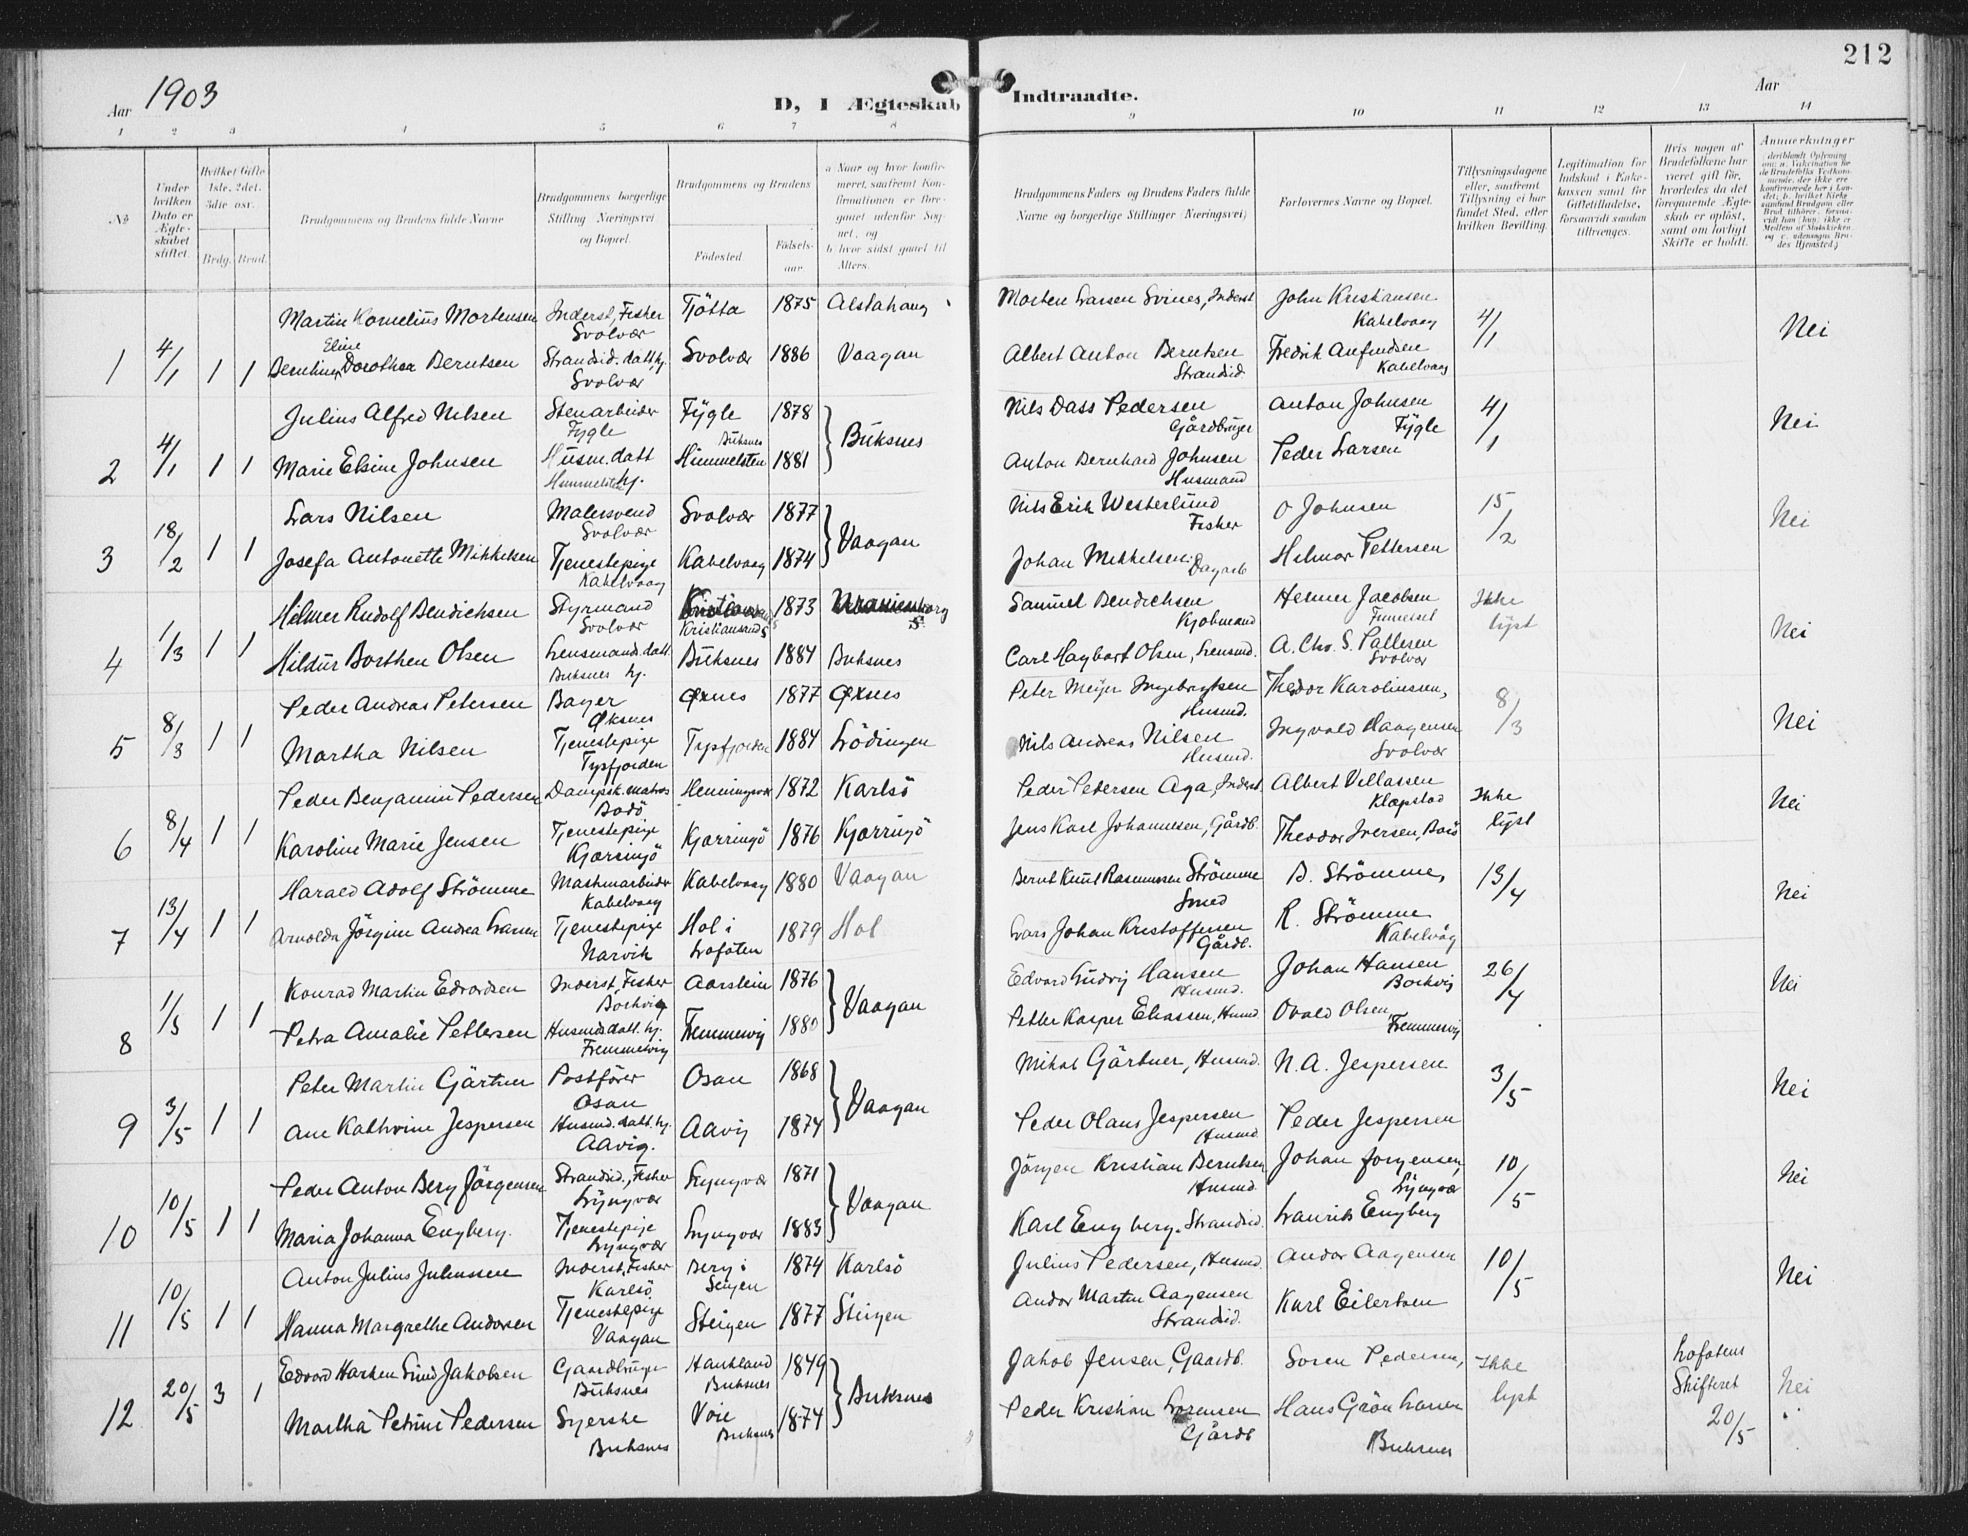 212
Aar 1903
D, I Ægteskab Indtraadte.
Aar
1 2 3 4 5 6 7 8 9 10 11 12 13 14
No
Under hvilken Dato er Ægteskabet stiftet
Hvilket Gifte 1ste, 2det, 3die osv.
Brdg. Brud.
Brudgommens og Brudens fulde Navne
Brudgommens borgerlige Stilling Næringsvei og Bopæl.
Brudgommens og Brudens
Fødested
Fødselsaar.
a. Naar og hvor konfirmeret, saafremt Konfirmationen er foregaaet udenfor Sognet, og
b. hvor sidst gaaet til Alters.
Brudgommens Faders og Brudens Faders fulde Navne og borgerlige Stillinger (Næringsvei)
Forlovernes Navne og Bopæl.
Tillysningsdagene eller, saafremt Tillysning ei har fundet Sted, efter hvilken Bevilling.
Legitimation for Indskud i Enkekassen samt for Giftetilladelse, forsaavidt saadan tiltrænges.
Hvis nogen af Brudefolkene har været gift før, hvorledes da det foregaaende Ægteskab er opløst, samt om lovligt Skifte er holdt.
Anmerkninger
Martin Kornelius Mortensen Inderst, Fisher Tjötta 1875 Alstahaug Morten Larsen Svines, Inderst John Kristiansen
Svolvær Kabelvaag
1 4/1 1 1 Berntine Eline Dorothea Berntsen Strandsid. datt, hj. Svolvær 1886 Vaagan Albert Anton Berntsen Fredrik Anfindsen 4/1 Nei
Svolvær Strandsid Kabelvaag
Julius Alfred Nilsen Stenarbeider Fygle 1878 Nils Dass Pedersen Anton Johnsen 4/1 Nei
Fygle Gårdbruger Fygle
2 4/1 1 1 Marie Elsine Johnsen Husm. datt Himmelsten Buksnes 1881 Buksnes Anton Bernhard Johnsen Peder Larsen
Himmelsten hj. Husmand
Lars Nilsen Malersvend Svolvær 1877 Nils Erik Westerlund O Johnsen 15/2 Nei
Svolvær Fisher
3 18/2 1 1 Josefa Antonette Mikkelsen Tjenestepige Kabelvaag 1874 Vaagan Johan Mikkelsen Dagarb Hilmar Pettersen
Kabelvaag
Hilmer Rudolf Bendichsen Styrmand Kristiansund S 1873 Samuel Bendichsen Helmer Jacobsen Ikke lyst Nei
Svolvær Kjøbmand
4 1/3 1 1 Hildur Borthen Olsen Lensmands datt. Buksnes 1884 Buksnes Carl Hagbart Olsen, Lensmd. A. Chr. S. Pallesen
Buksnes hj. Svolvær
Peder Andreas Petersen Bager Øxnes 1877 Øxnes Peter Meyer Ingebrigtsen Theodor Karolinsen, 8/3 Nei
Øksnes Husmd.
5 8/3 1 1 Martha Nilsen Tjenestepige Tysfjorden 1884 Lödingen Nils Andreas Nilsen Ingvald Haagensen
Tysfjorden Husmd. Svolvær
Peder Benjamin Pedersen Dampsk. matros Henningsvær 1872 Karlsö Peder Pedersen Aga, Inderst Albert Vellassen Ikke lyst Nei
Bodö Klæpstad
6 8/4 1 1 Karoline Marie Jensen Tjenestepige Kjærringö 1876 Kjærringö Jens Karl Johannesen, Gårdb. Theodor Iversen, Bodö
Kjærringö
Harald Adolf Strömme Maskinarbeider Kabelvaag 1880 Vaagan Bernt Knut Rasmussen Strömme B. Strömme, 13/4 Nei
Kabelvaag Smed
7 13/4 1 1 Arnolda Jörgine Andrea Larsen Tjenestepige Hol i 1879 Hol Lars Johan Kristoffersen R. Strömme
Narvik Lofoten Gårdb. Kabelvåg
Konrad Martin Edvardsen Inderst, Fisher Aarstein 1876 Edvard Ludvig Hansen Johan Hansen 26/4 Nei
Borkvig Husmd. Borkvig
8 1/5 1 1 Petra Amalie Pettersen Husmds datt. hj. Fremmervig 1880 Vaagan Petter Kasper Eliassen, Husmd Ovald Olsen
Fremmervig Fremmervig
Peter Martin Gärtner Postförer Osan 1868 Mikal Gärtner, Husmd. N. A. Jespersen 3/5 Nei
Osan
9 3/5 1 1 Ane Kathrine Jespersen Husmd. datt. hj. Aavig 1874 Vaagan Peder Olaus Jespersen Peder Jespersen
Aavig. Husmd.
Peder Anton Berg Jörgensen Strandsid., Fisher Lyngvær 1871 Jörgen Kristian Berntsen Johan Jorgensen, 10/5 Nei
Lyngvær Husmd. Lyngvær
10 10/5 1 1 Maria Johanna Engberg. Tjenestepige Lyngvær 1883 Vaagan Karl Engberg. Strandsid. Laurits Engberg
Lyngvær
Anton Julius Juliussen Inderst, Fisher Berg i 1874 Karlsö Julius Pedersen, Husmd. Andor Aagensen 10/5 Nei
Karlsö Senjen
11 10/5 1 1 Hanna Margrethe Andorsen Tjenestepige Steigen 1877 Steigen Andor Martin Aagensen Karl Eilertsen
Vaagan Strandsid.
Edvard Harken Lind Jakobsen Gaardbruger Haukland 1849 Jakob Jensen, Gaardb. Soren Pedersen, Ikke lyst Lofotens Skifteret 20/5 Nei
Buksnes Buksnes
12 20/5 3 1 Martha Petrine Pedersen Syerske Voie 1874 Buksnes Peder Kristian Sorensen Hans Grön Larsen
Buksnes Buksnes Gårdb Buksnes